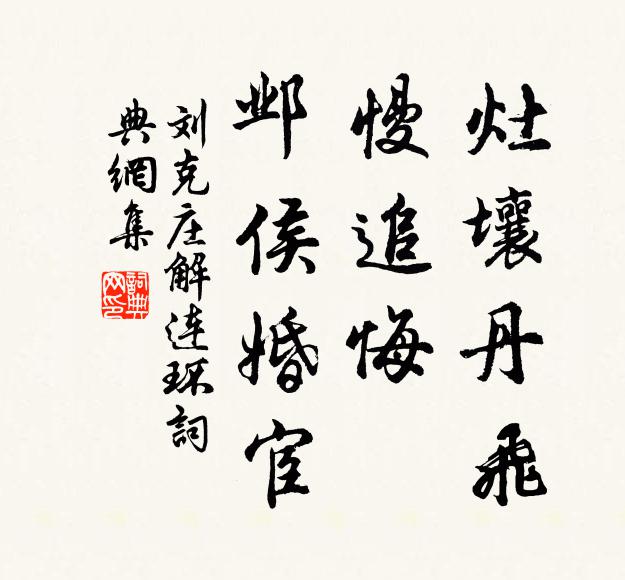 灶壤丹飛
慢追悔
邺侯婚宦
刘克庄解连环詞
典網集
詞典网印